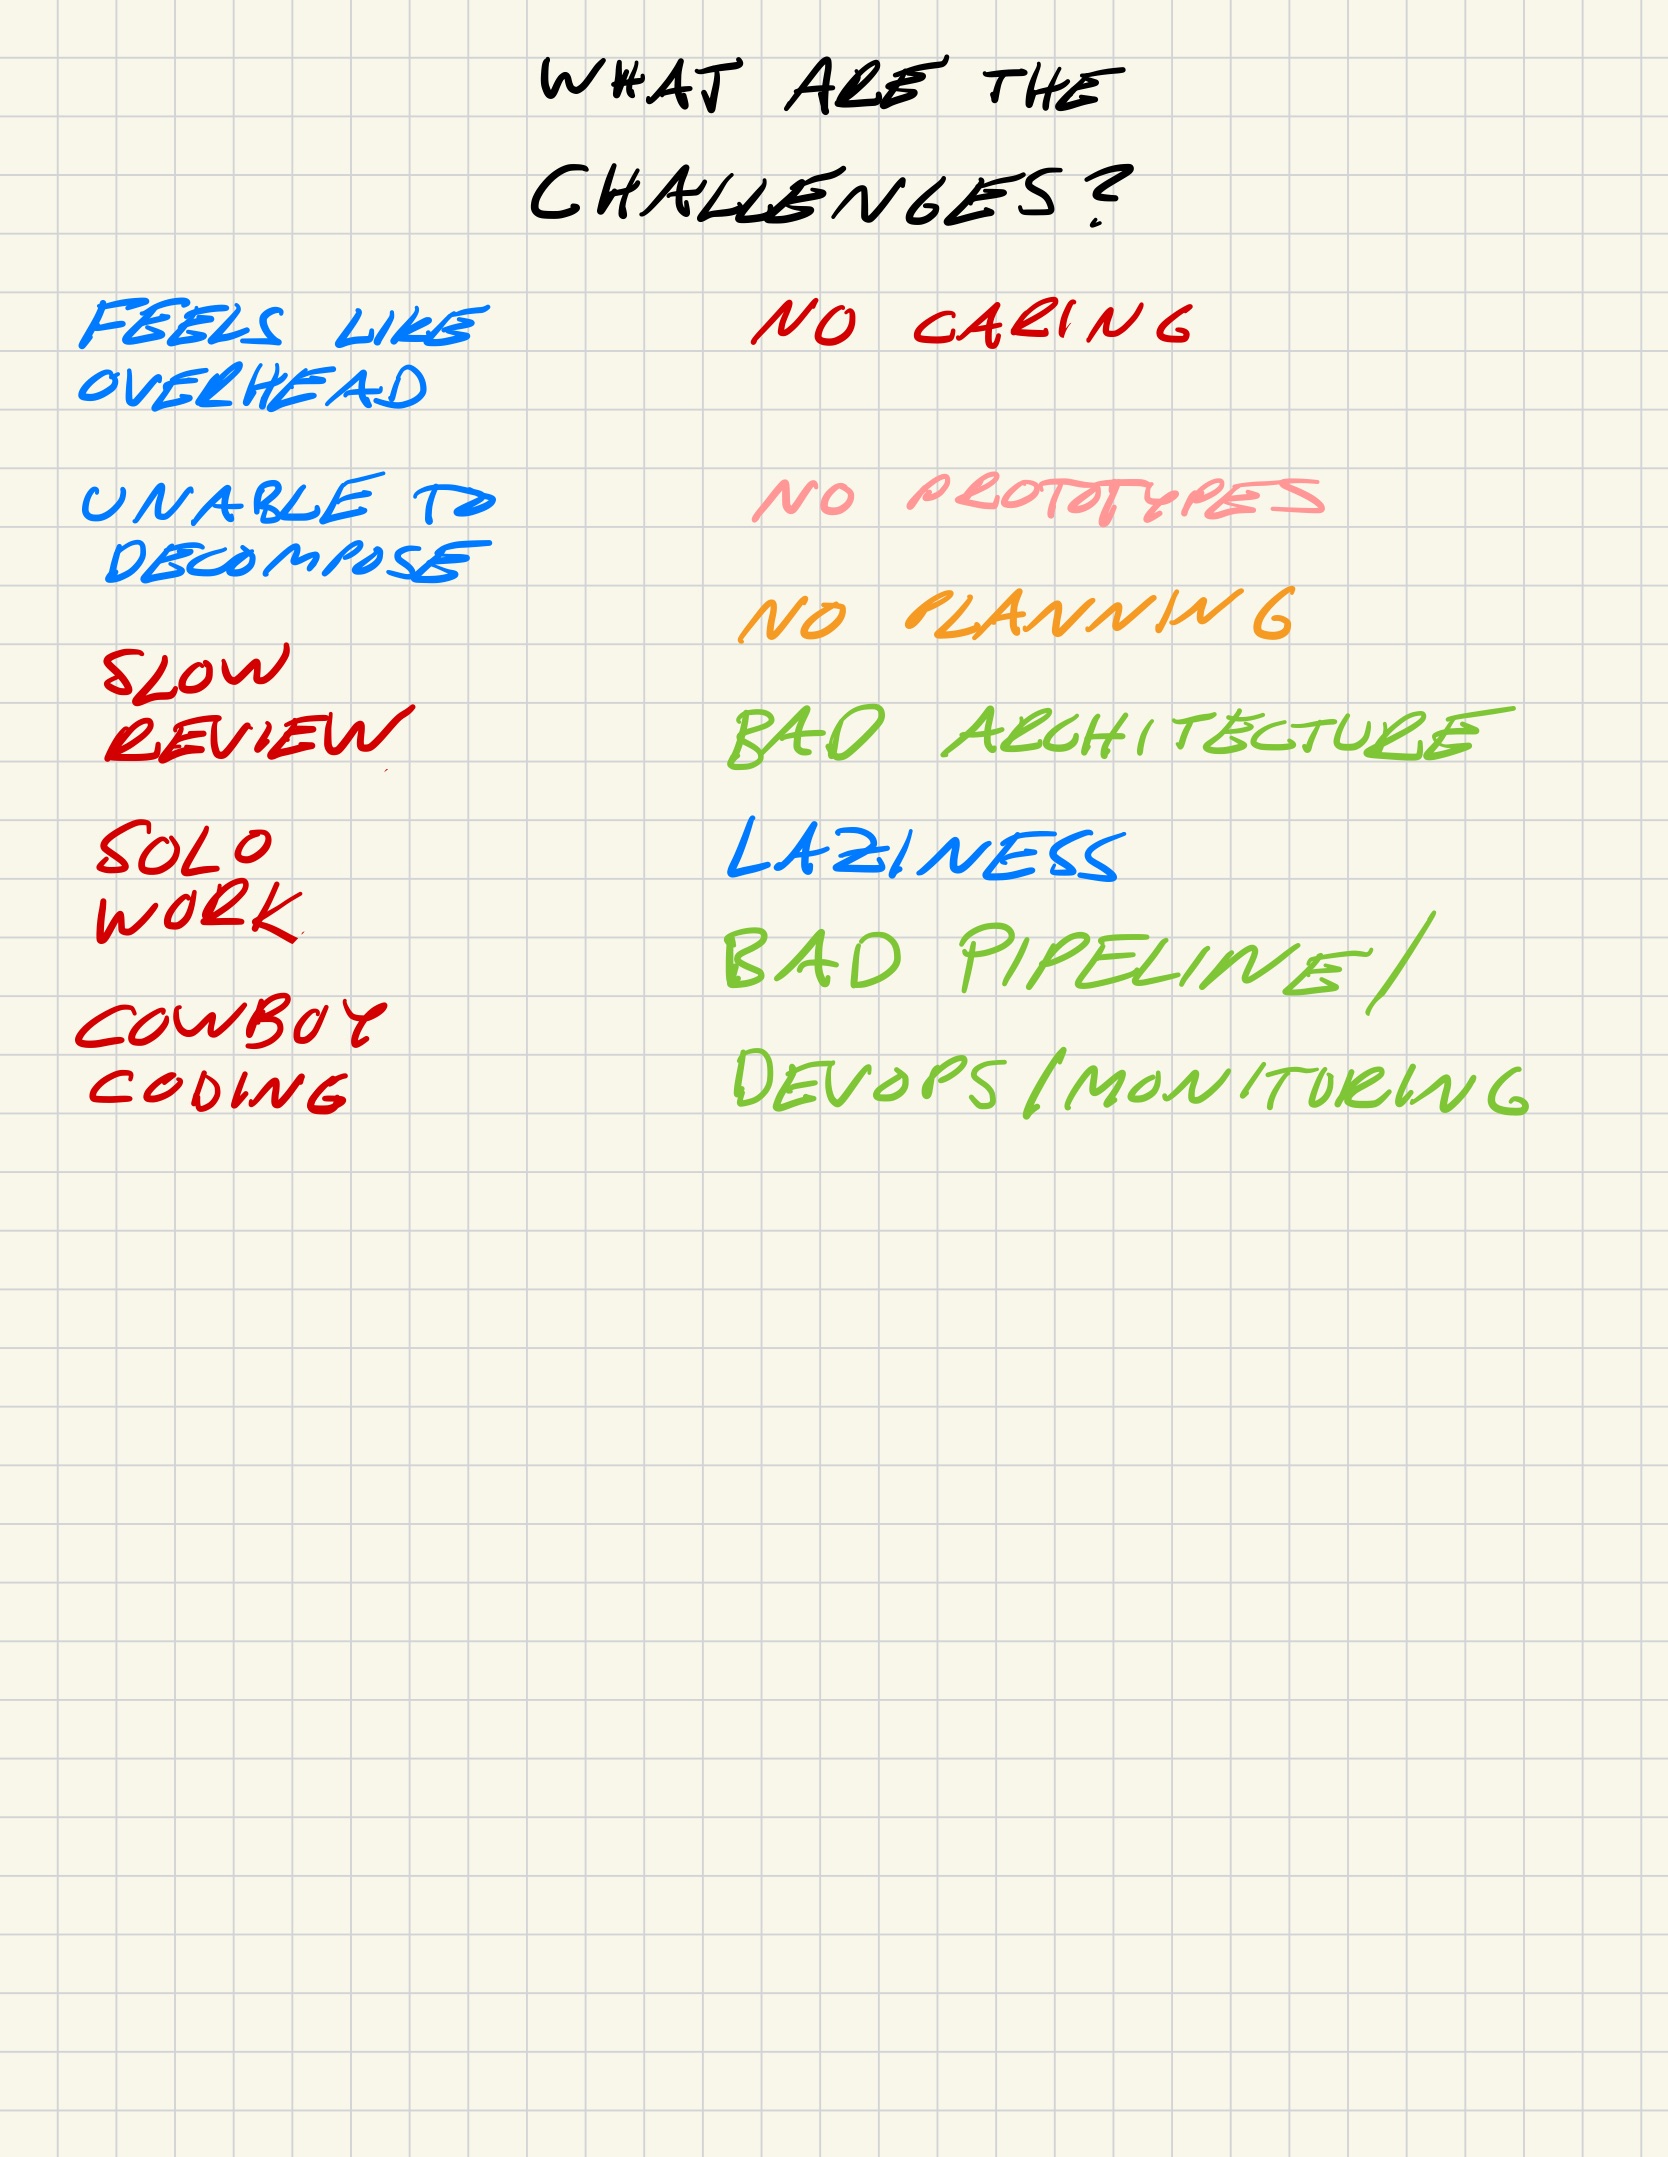 WHAT ARE THE
CHALLENGES?
FEELS LIKE
OVERHEAD
UNABLE TO
DECOMPOSE
SLOW
REVIEW
SOLO
WORK
COWBOY
CODING
NO CARING
NO PROTOTYPES
NO PLANNING
BAD ARCHITECTURE
LAZINESS
BAD PIPELINE/
DEVOPS/MONITORING